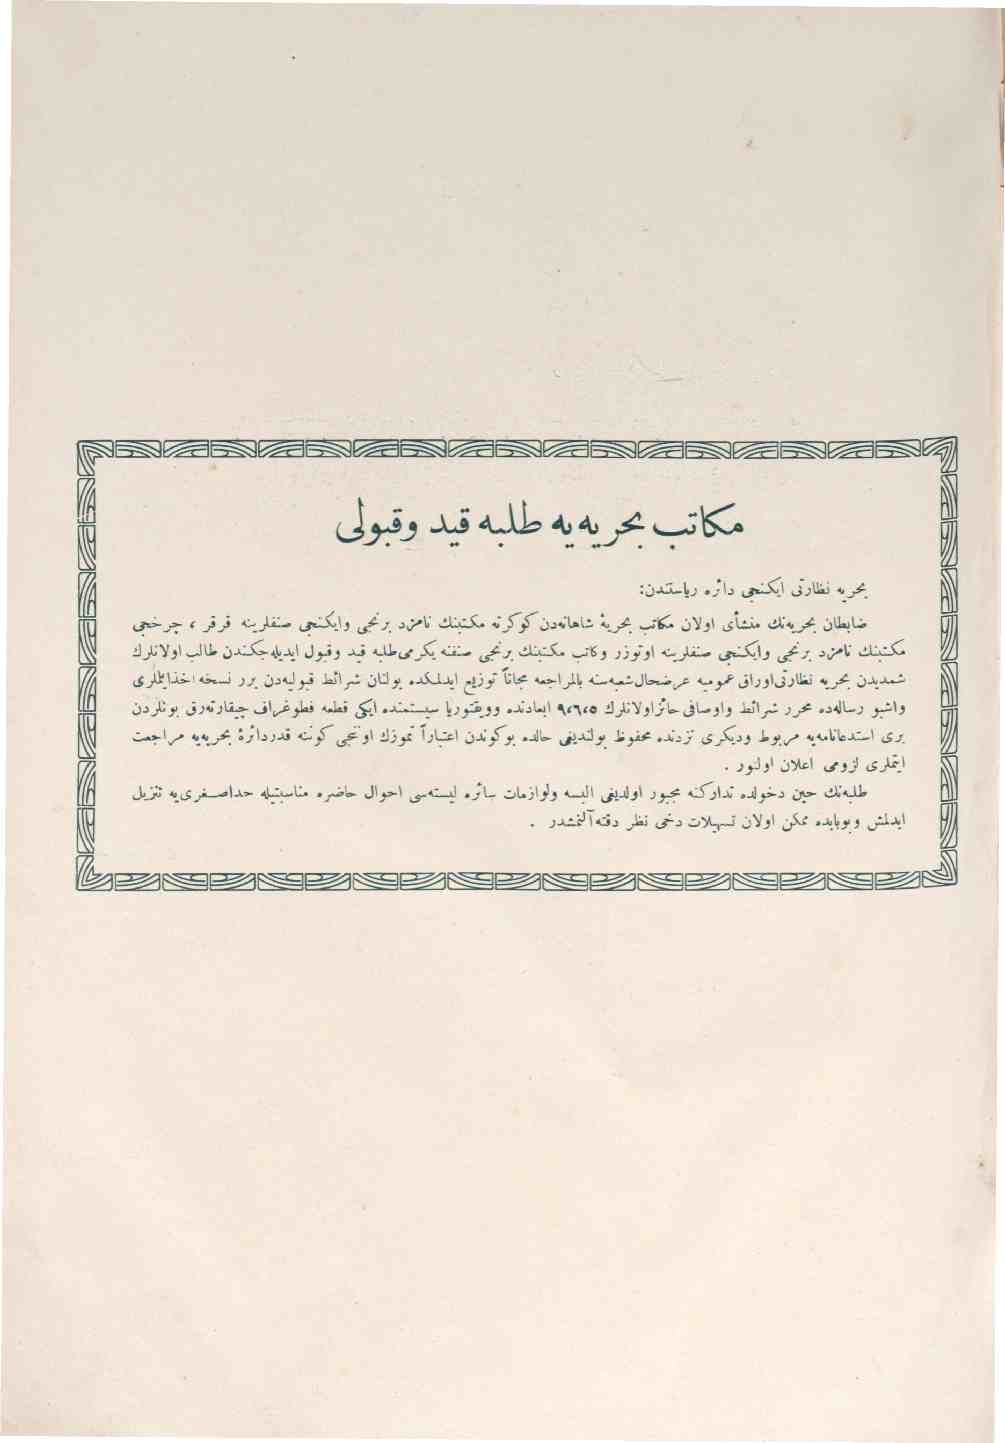 مكاتب بحريه‌يه طلبه قيد وقبولى
بحريه نظارتى ايكنجى دائره رياستندن:
ضابطان بحريه‌نك منشأى اولان مكاتب بحريۀ شاهانه‌دن كوكرته مكتبنك نامزد برنجى وايكنجى صنفلرينه قرقر ، چرخجى
مكتبنك نامزد برنجى وايكنجى صنفلرينه اوتوزر وكاتب مكتبنك برنجى صنفنه يكرمى طلبه قيد وقبول ايديله‌جكندن طالب اولانلرك
شمديدن بحريه نظارتى اوراق عموميه عرضحال شعبه‌سنه بالمراجعه مجاناً توزيع ايدلمكده بولنان شرائط قبوليه‌دن برر نسخه اخذايتملرى
واشبو رساله‌ده محرر شرائط واوصافى حائز اولانلرك ٩،٦،٥ ابعادنده وويقتوريا سيستمنده ايكى قطعه فطوغراف چيقارته‌رق بونلردن
برى استدعانامه‌يه مربوط وديكرى نزدنده محفوظ بولنديغى حالده بوكوندن اعتباراً تموزك اوننجى كوننه قدر دائرۀ بحريه‌يه مراجعت
ايتملرى لزومى اعلان اولنور .
طلبه‌نك حين دخولده تداركنه مجبور اولديغى البسه ولوازمات سائره ليسته‌سى احوال حاضره مناسبتيله حداصغرى‌يه تنزيل
ايدلمش وبوبابده ممكن اولان تسهيلات دخى نظر دقته آلنمشدر .